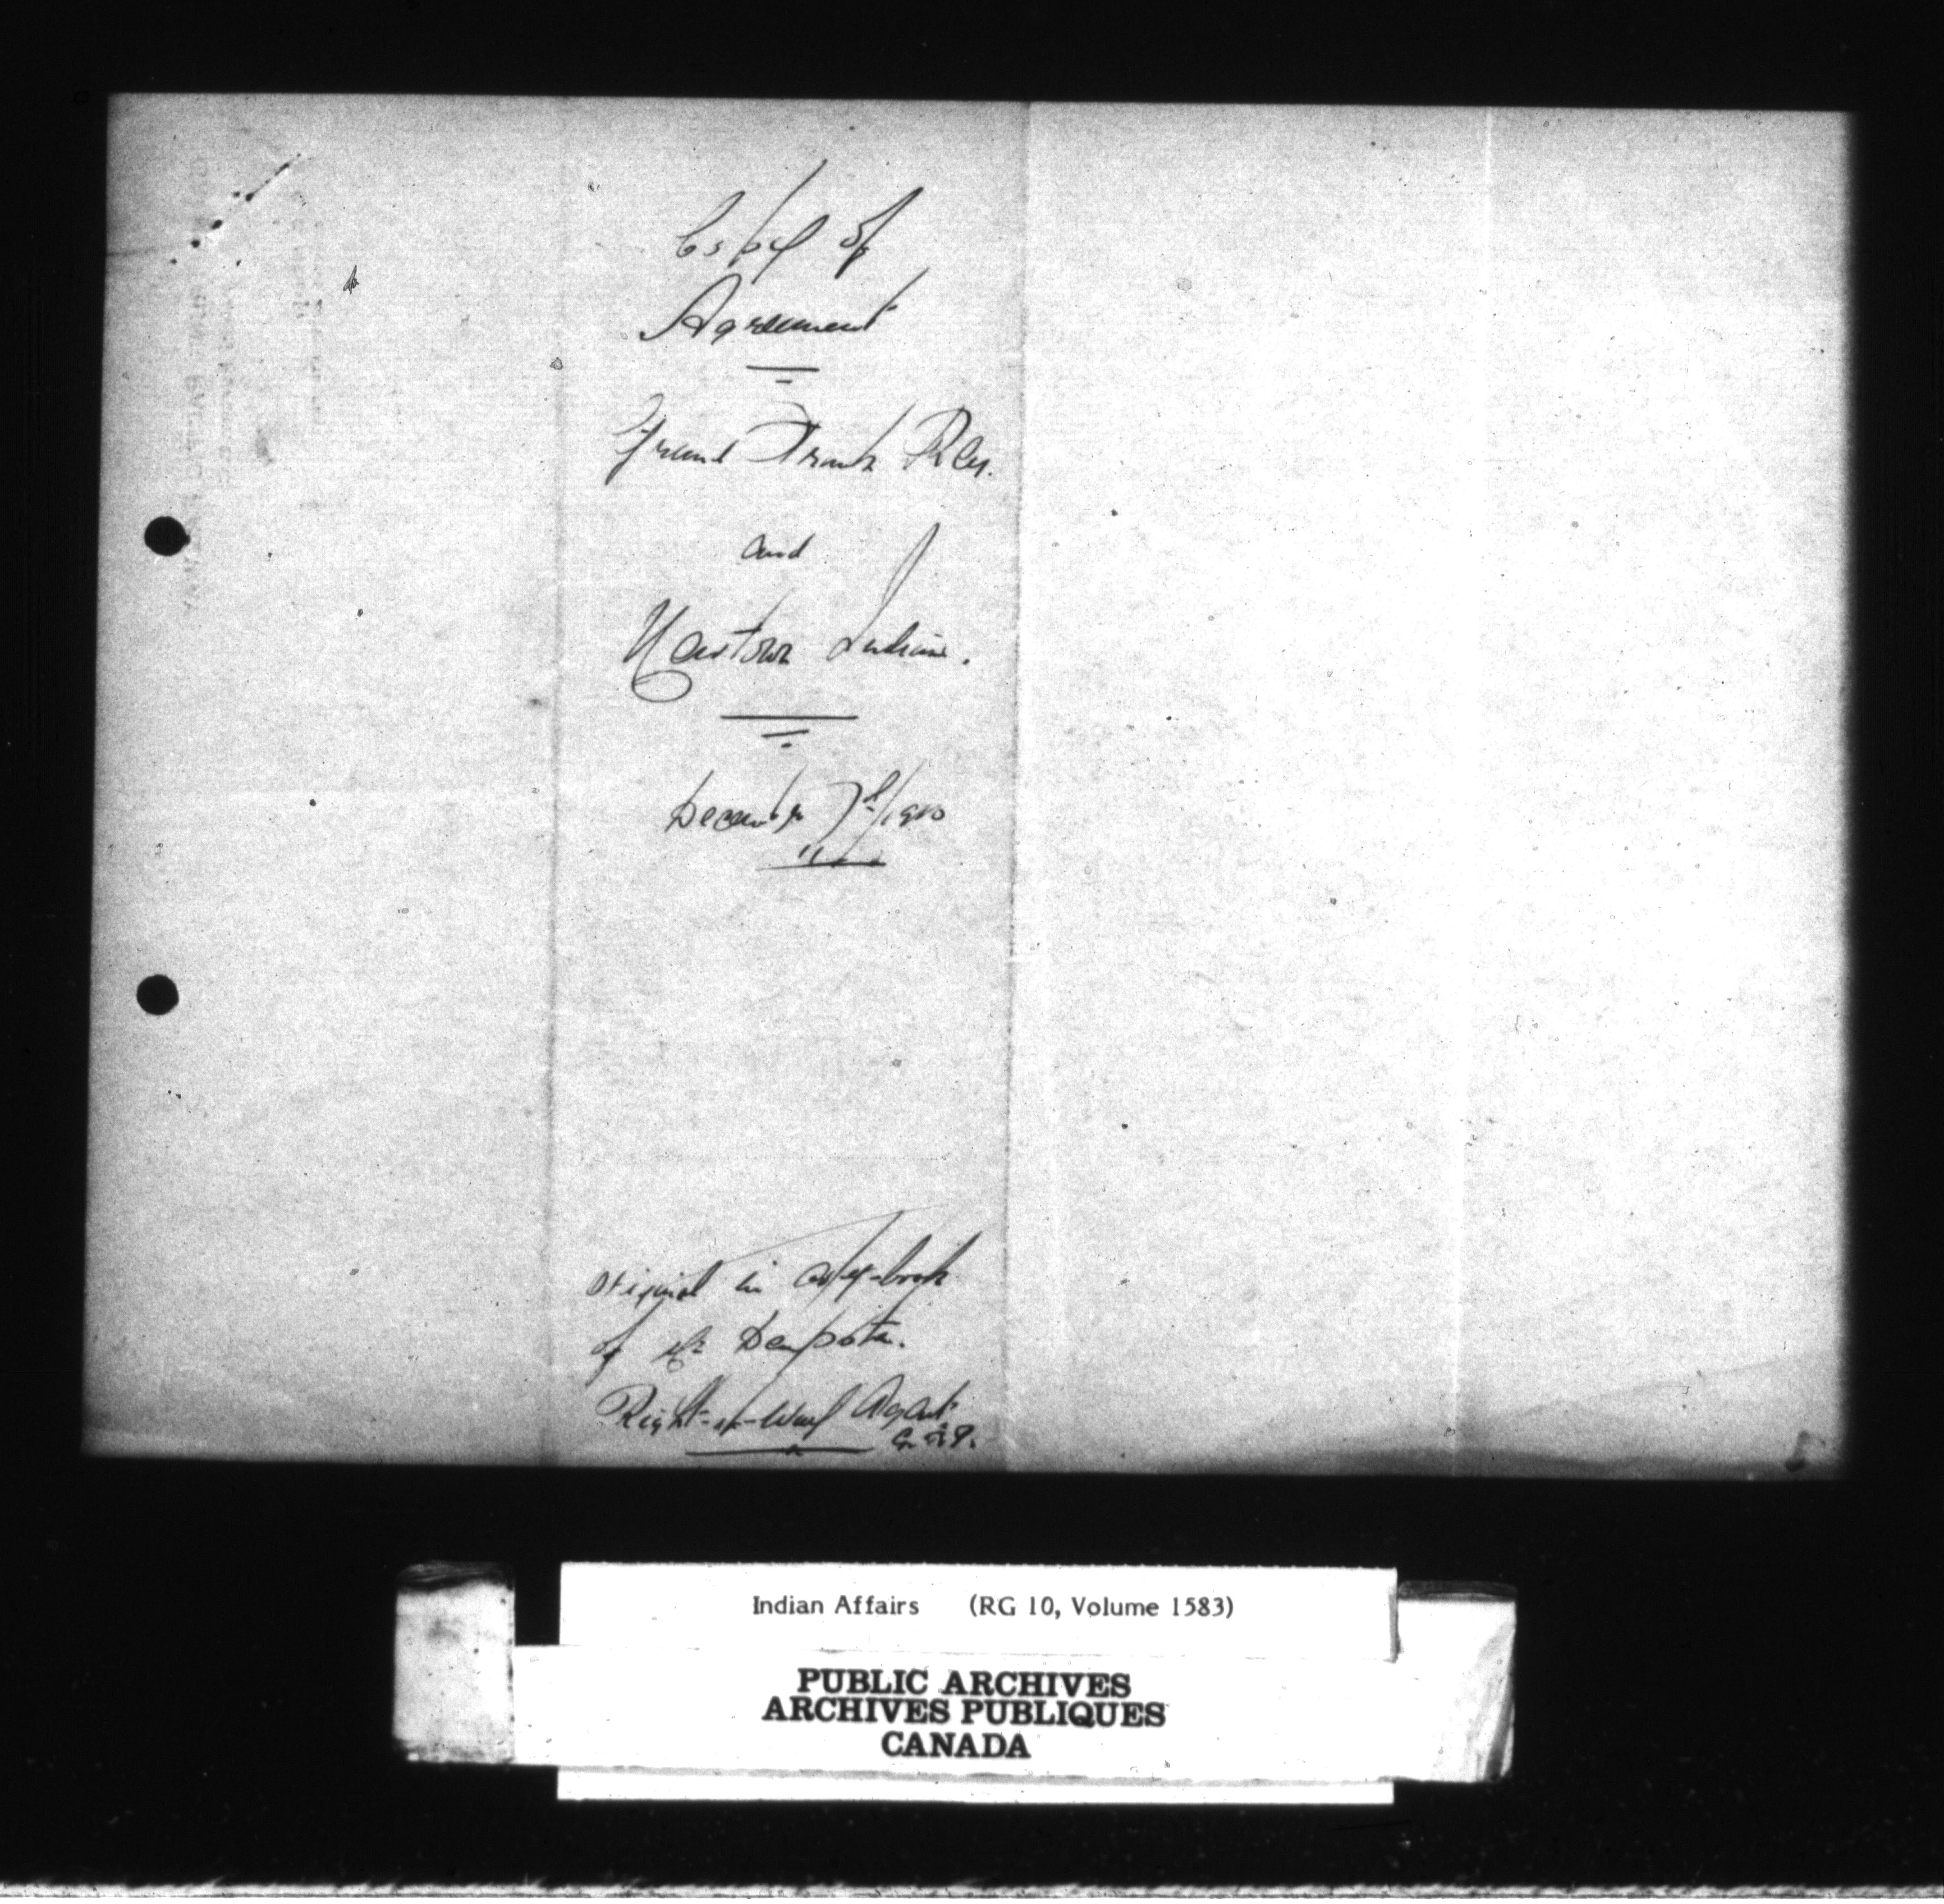 Copy of
Agreement
Grand Trunk Rly.
and
Newtown Indians.
December 7th/1910
Original in copy-book
of Mr
Right-of-Way Agent
G.T.P.
Indian Affairs (RG 10, Volume 1583)
PUBLIC ARCHIVES
ARCHIVES PUBLIQUES
CANADA